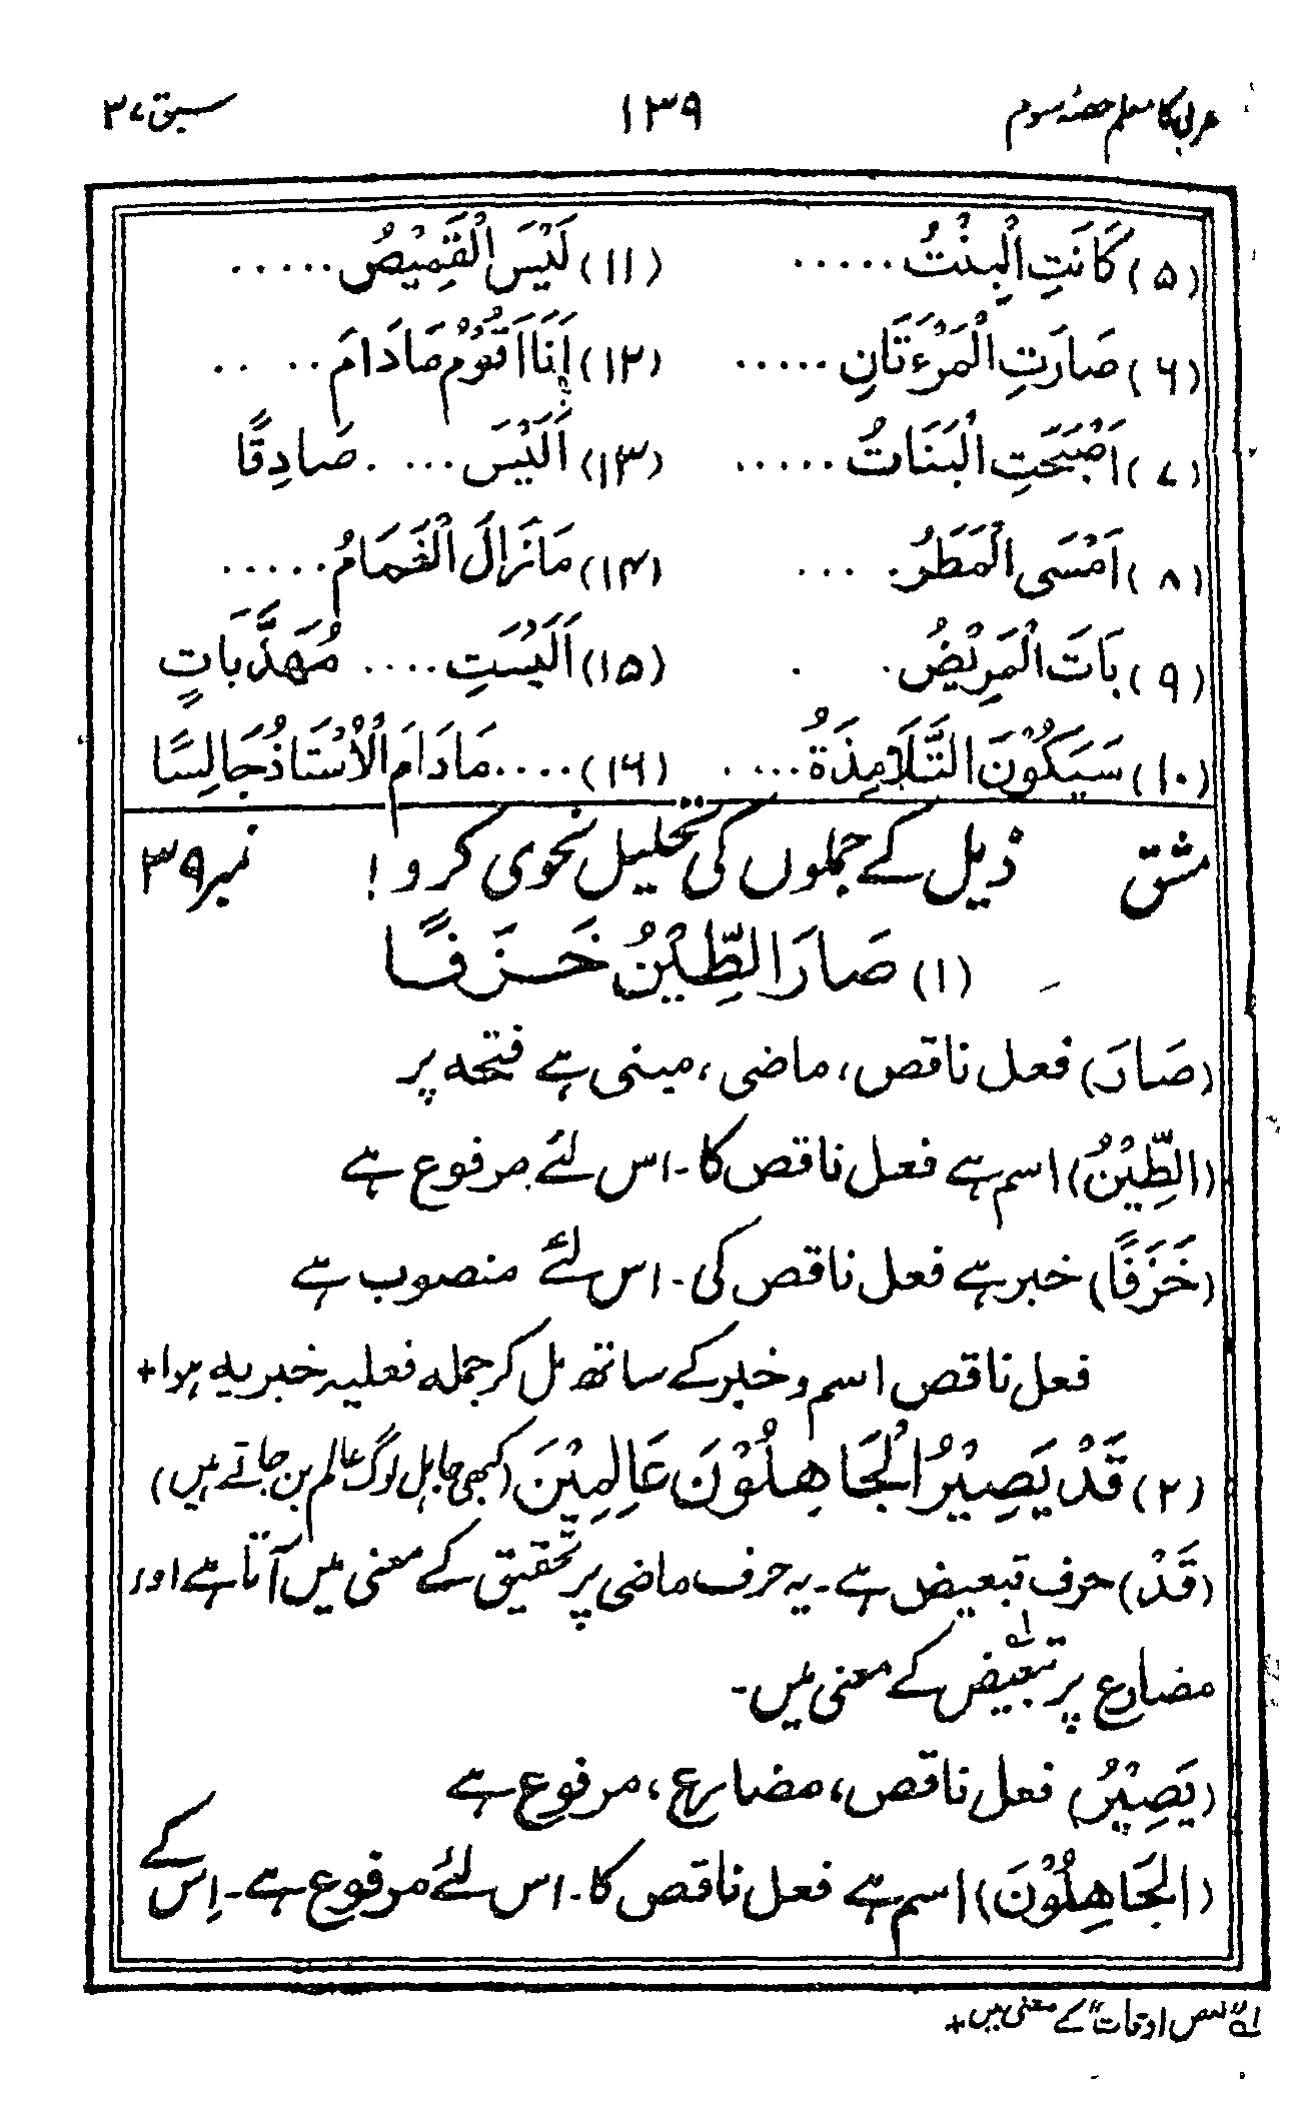 عربی کا معلم حصہ سوم ۱۳۹ سبق ۳۷
(۵) كَانَتِ الْبِنْتُ ..... (۱۱) لَيْسَ الْقَمِيْصُ .....
(۶) صَارَتِ الْمَرْءَتَانِ ..... (۱۲) اَنَا اَقُوْمُ مَا دَامَ .. ..
(۷) اَصْبَحَتِ الْبَنَاتُ ..... (۱۳) اَلَيْسَ .... . صَادِقًا
(۸) اَمْسَى الْمَطَرُ . ... (۱۴) مَا زَالَ الْغَمَامُ .....
(۹) بَاتَ الْمَرِيْضُ . . (۱۵) اَلَيْسَتِ .... مُهَذَّبَاتٍ
(۱۰) سَيَكُوْنَ التَّلَامِذَةُ ..... (۱۶) .... مَا دَامَ الْاُسْتَاذُ جَالِسًا
مشق ذیل کے جملوں کی تحلیل نحوی کرو! نمبر ۳۹
(۱) صَارَ الطِّيْنُ خَزَفًا
(صَارَ) فعل ناقص، ماضی، مبنی ہے فتحہ پر
(الطِّيْنُ) اسم ہے فعل ناقص کا۔ اس لئے مرفوع ہے
(خَزَفًا) خبر ہے فعل ناقص کی۔ اس لئے منصوب ہے
فعل ناقص اسم و خبر کے ساتھ مل کر جملہ فعلیہ خبریہ ہوا+
(۲) قَدْ يَصِيْرُ الْجَاهِلُوْنَ عَالِمِيْنَ (کبھی جاہل لوگ عالم بن جاتے ہیں)
(قَدْ) حرف تبعیض ہے۔ یہ حرف ماضی پر تحقیق کے معنی میں آتا ہے اور
مضارع پر تبعیض لہ کے معنی میں۔
(يَصِيْرُ) فعل ناقص، مضارع، مرفوع ہے
(الْجَاهِلُوْنَ) اسم ہے فعل ناقص کا۔ اس لئے مرفوع ہے۔ اِس کے
لہ "بعض اوقات" کے معنی میں+